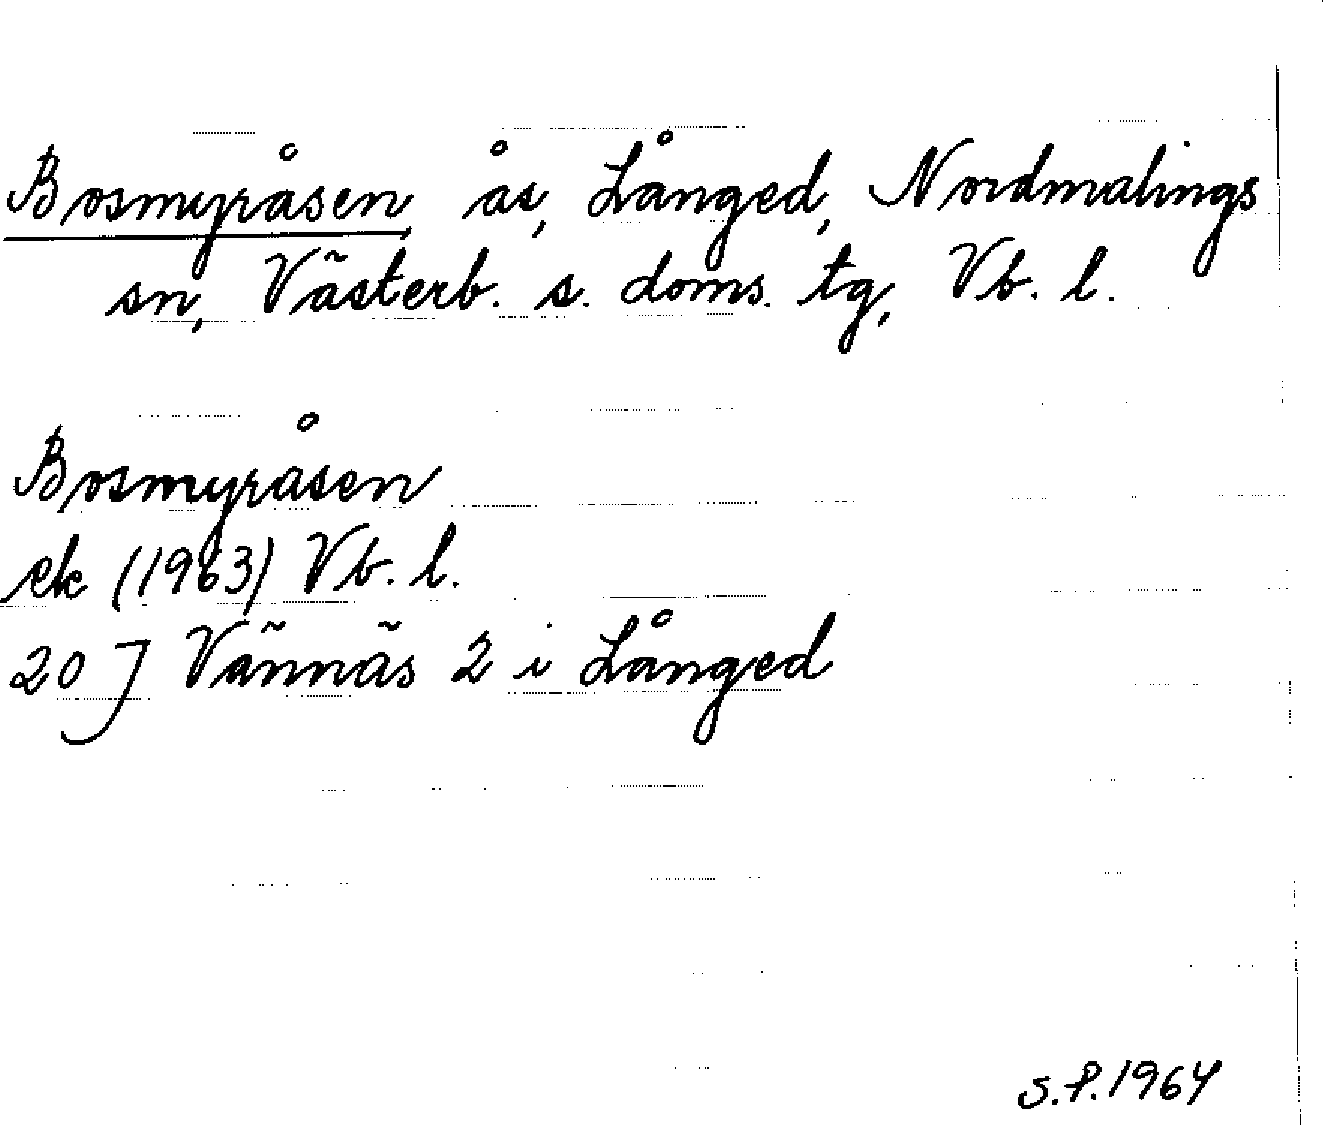 Bosmyråsen, ås, Långed, Nordmalings
sn, Västerb. s. doms. tg, Vb. l.
Bosmyråsen
ek (1963) Vb. l.
20 J Vännäs 2 i Långed
S.P. 1964